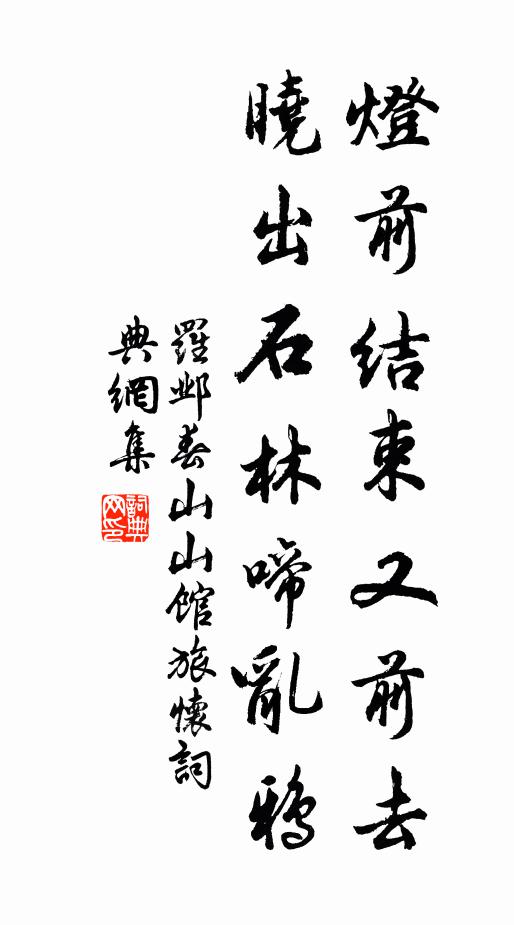 燈前結束又前去
曉出石林啼亂鴉
羅鄴春山山館旅懷詞
典網集
詞典
网印